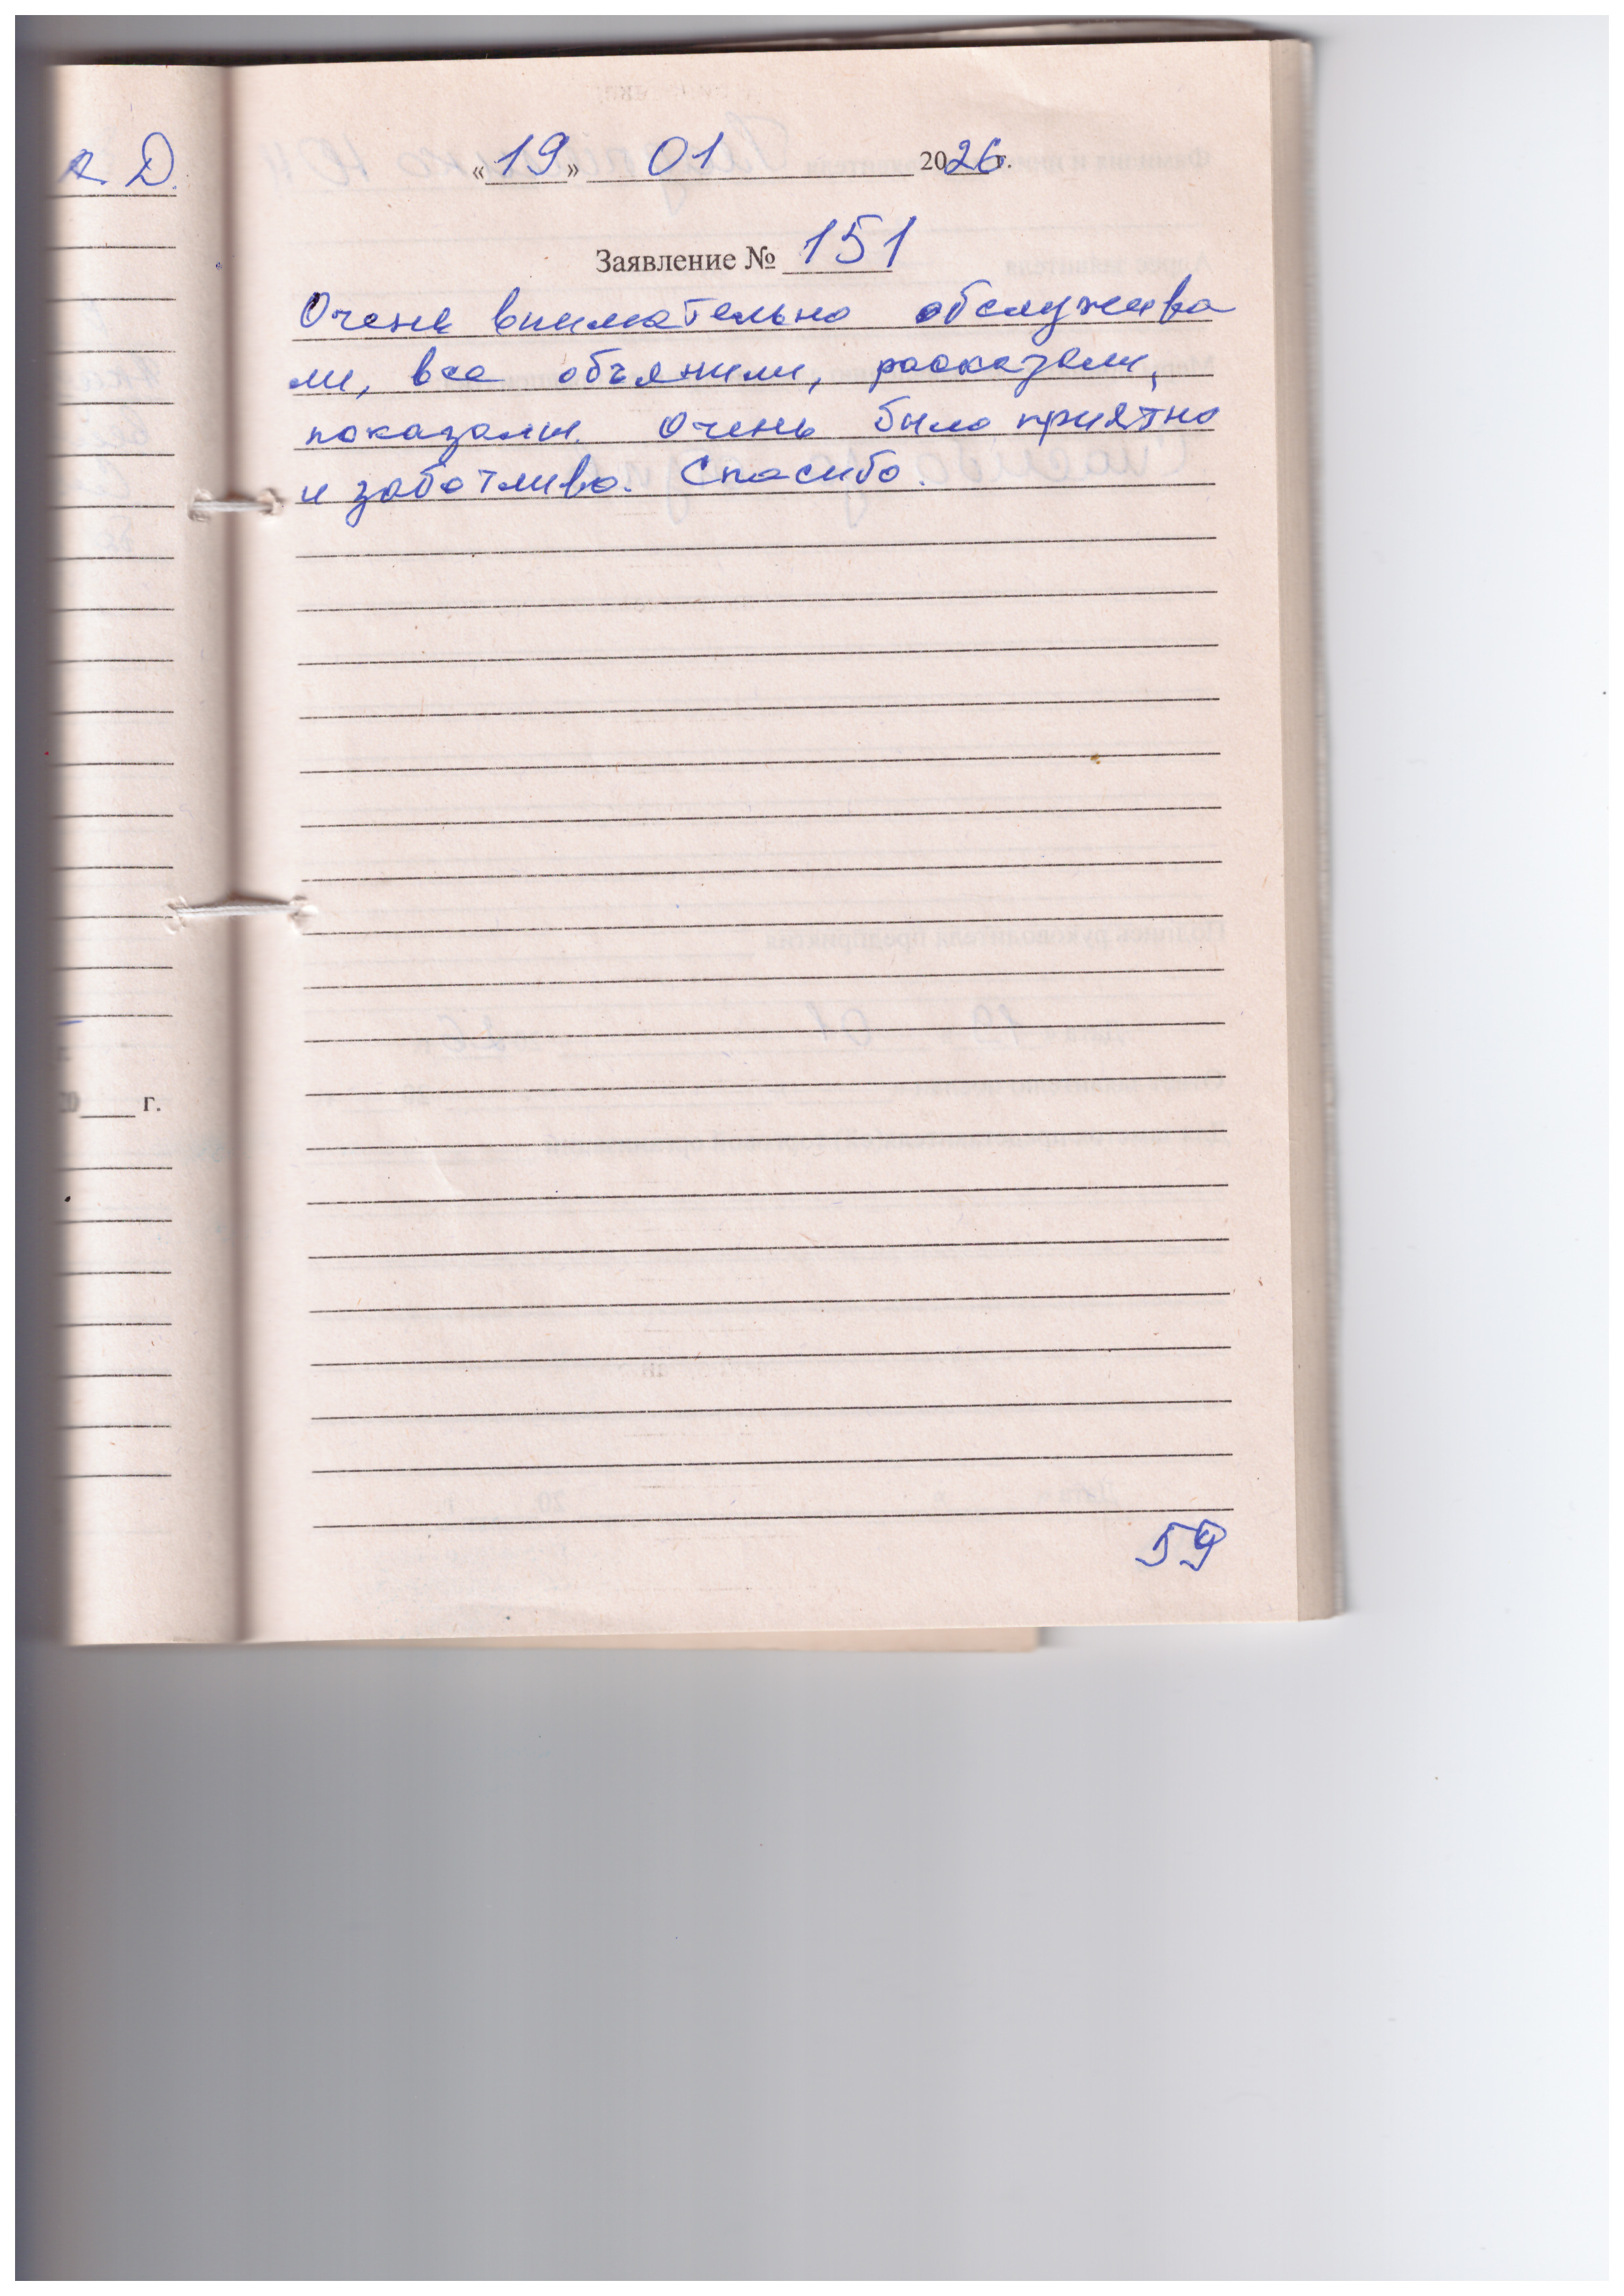 я. Д.
«19» 01 2026г.
Заявление № 151
Очень внимательно обслужива
ли, все объяснили, рассказали,
показали. Очень было приятно
и заботливо. Спасибо.
г.
59